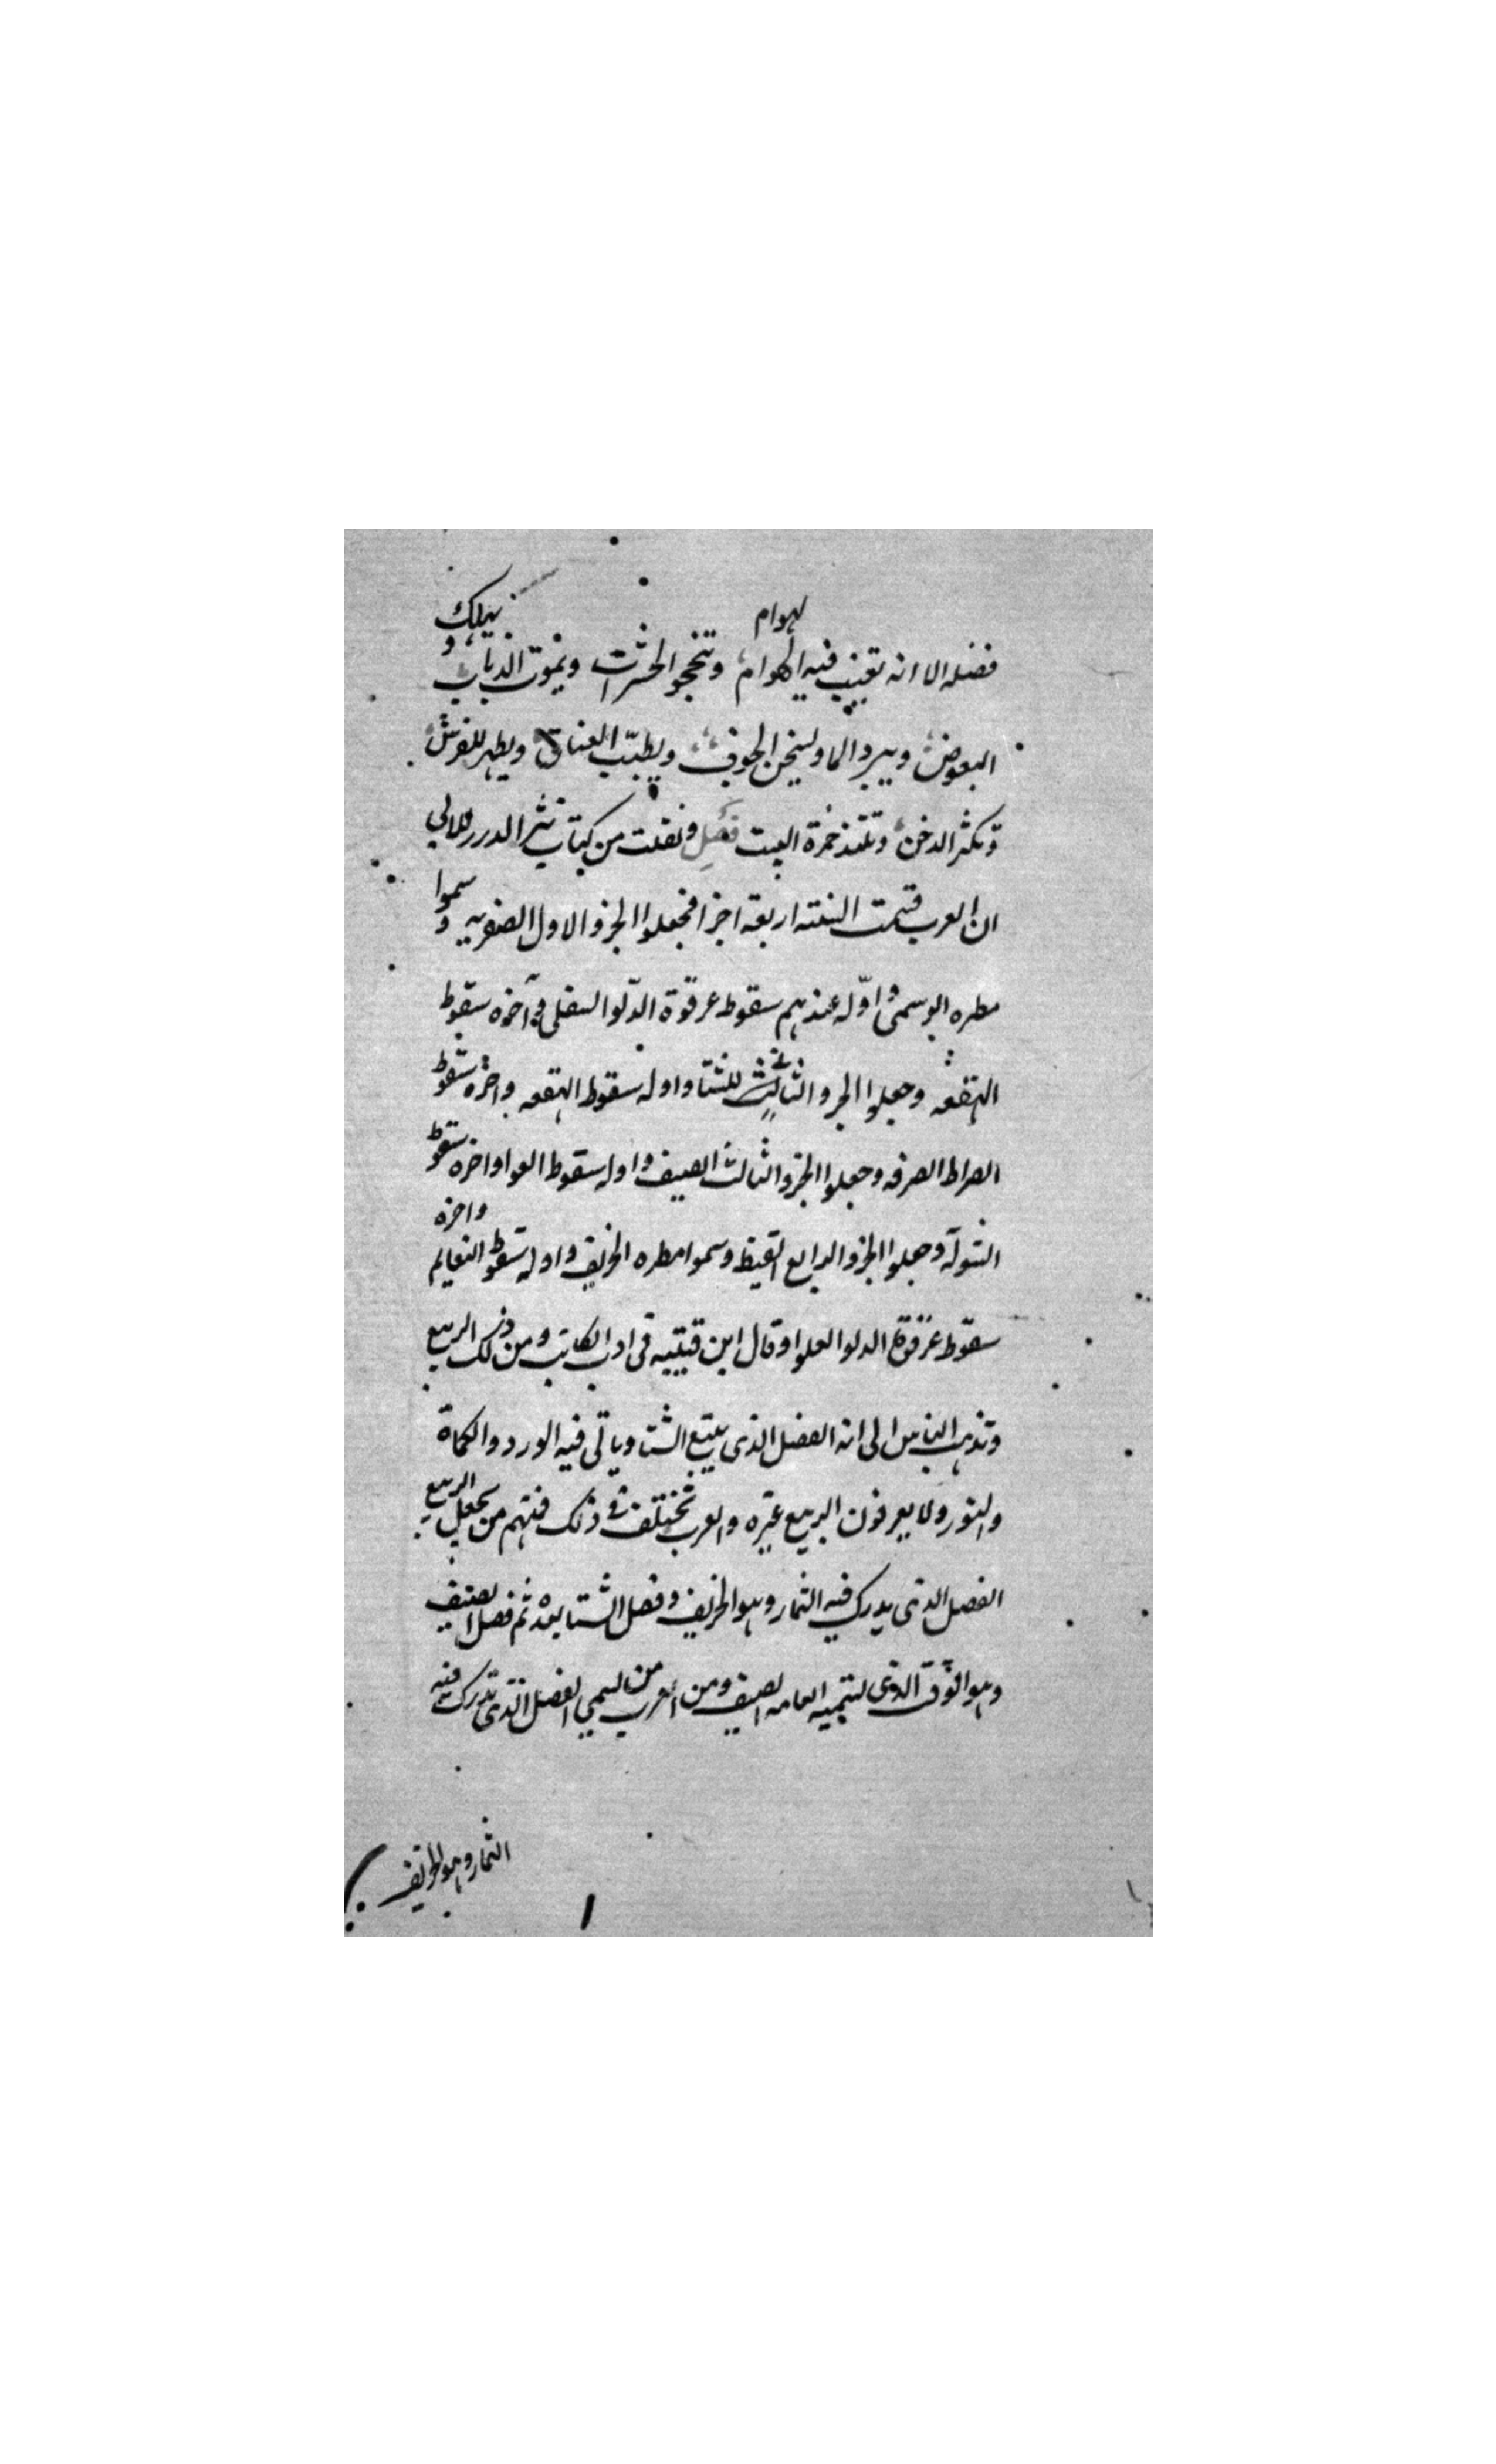 لهوام
فضله الا انه تغيب فيه الهوام وتنحجر الحشرات ويموت الذباب ويهلك
البعوض ويبرد الما ويسخن الجوف ويطيب العناق ويطهر الفرش
وتكثر الدخن وتلتذ خمرة البيت فصل ونقلت من كتاب نثر الدرر للالي
ان العرب قسمت السنته اربعة اجزا فجعلوا الجزو الاول الصفريه وسموا
مطره الوسمى واوله عندهم سقوط عرقوة الدلو السفلى وآخره سقوط
الهقعه وجعلوا الجزو الثانى للشتا واوله سقوط الهقعه واخره سقوط
الصراط الصرفه وجعلوا الجزو الثالث الصيف واوله سقوط العوا واخره سقوط
الشوله وجعلوا الجزو الرابع القيظ وسموا مطره الخريف واوله سقوط النعايم واخره
سقوط عرقوة الدلو العلوا وقال ابن قتيبه فى ادب الكاتب ومن ذلك الربيع
وتذهب الناس الى انه الفصل الذى يتبع الشتا وياتى فيه الورد والكماة
والنور ولا يعرفون الربيع غيره والعرب تختلف فى ذلك فمنهم من يجعل الربيع
الفصل الذى يدرك فيه الثمار وهو الخريف وفصل الشتا بعده ثم فصل الصيف
وهو الوقت الذى تسميه العامه الصيف ومن العرب من يسمي الفصل الذى تدرك فيه
الثمار وهو الخريف